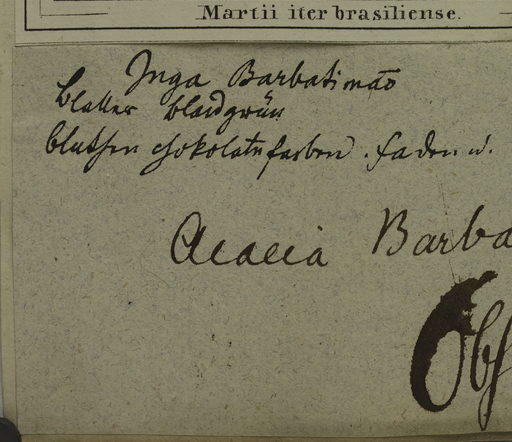 Martii iter brasiliense.
Inga Barbatimão
blatter blaulgrün
bluthen chokolatnfarben. faden u.
Acacia Barba
Obs